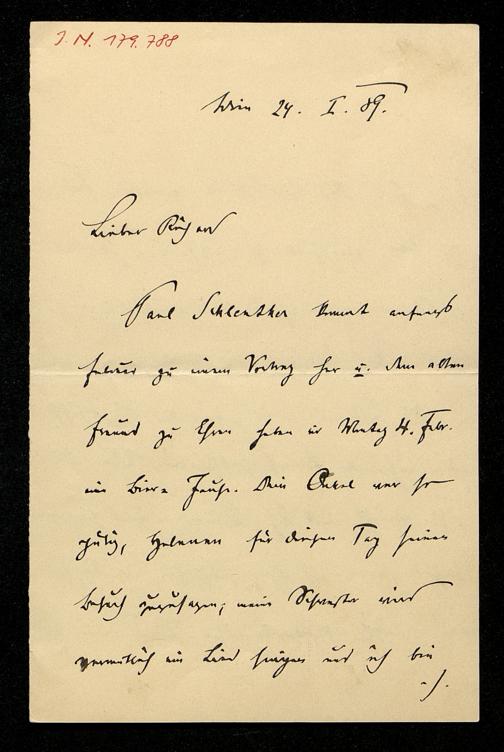 J. N. 179.788
Wien 24. I. 89.
Lieber Richard
Paul Schlenther kommt anfangs
Februar zu einem Vortrag her u. dem alten
Freund zu Ehren haben wir Montag 4. Febr.
ein Bier=Jause. Dein Onkel war so
gütig, Helenen für diesen Tag seinen
Besuch zuzusagen; meine Schwester wird
vermutlich ein Lied singen und ich bin